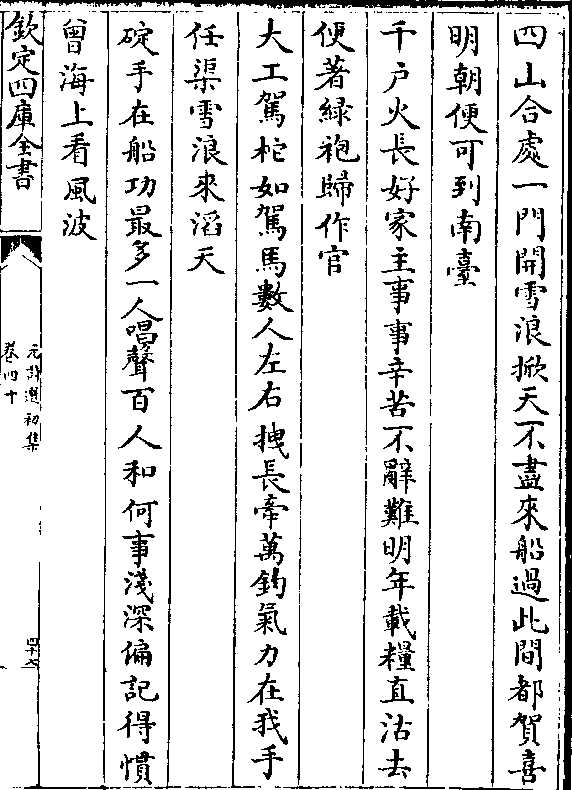 四山合處一門開雪浪掀天不盡來船過此間都賀喜
明朝便可到南臺
千戸火長好家主事事辛苦不辭難明年載糧直沽去
便著緑袍歸作官
大工駕柁如駕馬數人左右拽長牽萬鈞氣力在我手
任渠雪浪來滔天
碇手在船功最多一人唱聲百人和何事淺深偏記得慣
曾海上看風波
欽定四庫全書
元詩選初集
卷四十